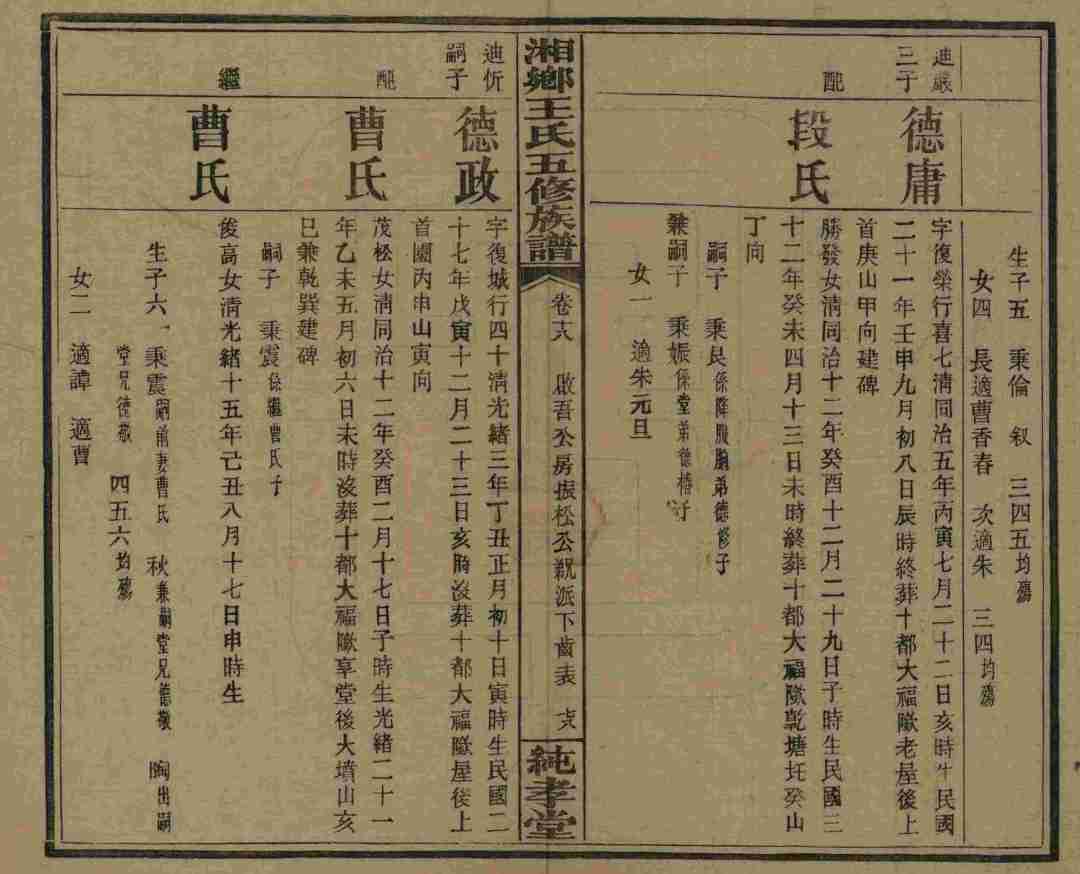 生子五 乘倫 叙 三四五均殤
女四 長適曹香春 次適朱 三四均殤
迪嚴
三子
德庸
字復榮行喜七清同治五年丙寅七月二十二日亥時生民國
二十一年壬申九月初八日辰時終葬十都大福歐老屋後上
首庚山甲向建碑
配
段氏
勝發女清同治十二年癸酉十二月二十九日子時生民國三
十二年癸未四月十三日未時終葬十都大福歐乾塘托癸山
丁向
嗣子 乘民係降服胞弟德修子
兼嗣子 乘娠係堂弟德椿子
女一 適朱元旦
湘鄉王氏五修族譜
卷十八 啟吾公房振松公親派下齒表 十八
純孝堂
迪忻
嗣子
德政
字復城行四十清光緒三年丁丑正月初十日寅時生民國二
十七年戊寅十二月二十三日亥時沒葬十都大福歐屋後上
首圍丙申山寅向
配
曹氏
茂松女清同治十二年癸酉二月十七日子時生光緒二十一
年乙未五月初六日未時沒葬十都大福歐享堂後大墳山亥
巳兼乾巽建碑
嗣子 乘震係繼曹氏子
繼
曹氏
俊高女清光緒十五年己丑八月十七日申時生
生子六 乘震嗣前妻曹氏 秋兼嗣堂兄德敬 陶出嗣
堂兄德敬 四五六均殤
女二 適譚 適曹